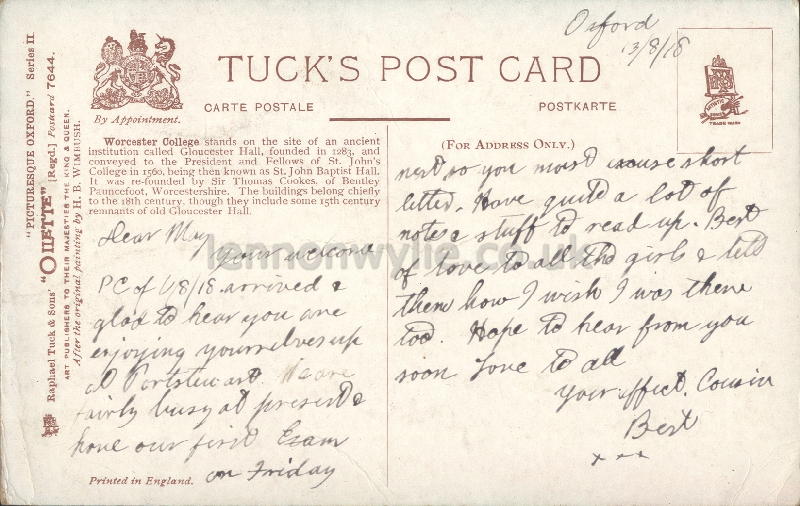 Oxford
13/8/18
"PICTURESQUE OXFORD." Series II
Raphael Tuck & Sons' "OILETTE" [Regd.] Postcard 7644.
ART PUBLISHERS TO THEIR MAJESTIES THE KING & QUEEN.
After the original painting by H. B. WIMBUSH.
By Appointment.
TUCK'S POST CARD
CARTE POSTALE
POSTKARTE
TRADE MARK
Worcester College stands on the site of an ancient
institution called Gloucester Hall, founded in 1283, and
conveyed to the President and Fellows of St. John's
College in 1560, being then known as St. John Baptist Hall.
It was re-founded by Sir Thomas Cookes, of Bentley
Pauncefoot, Worcestershire. The buildings belong chiefly
to the 18th century, though they include some 15th century
remnants of old Gloucester Hall.
Dear May
Your welcome
PC of 6/8/18 arrived &
glad to hear you are
enjoying yourselves up
at Portstewart. We are
fairly busy at present &
have our first Exam
on Friday
Printed in England.
(FOR ADDRESS ONLY.)
next so you must excuse short
letter. Have quite a lot of
notes & stuff to read up. Best
of love to all the girls & tell
them how I wish I was there
too. Hope to hear from you
soon Love to all
Your affect. Cousin
Bert
x x x
lennonwylie.co.uk